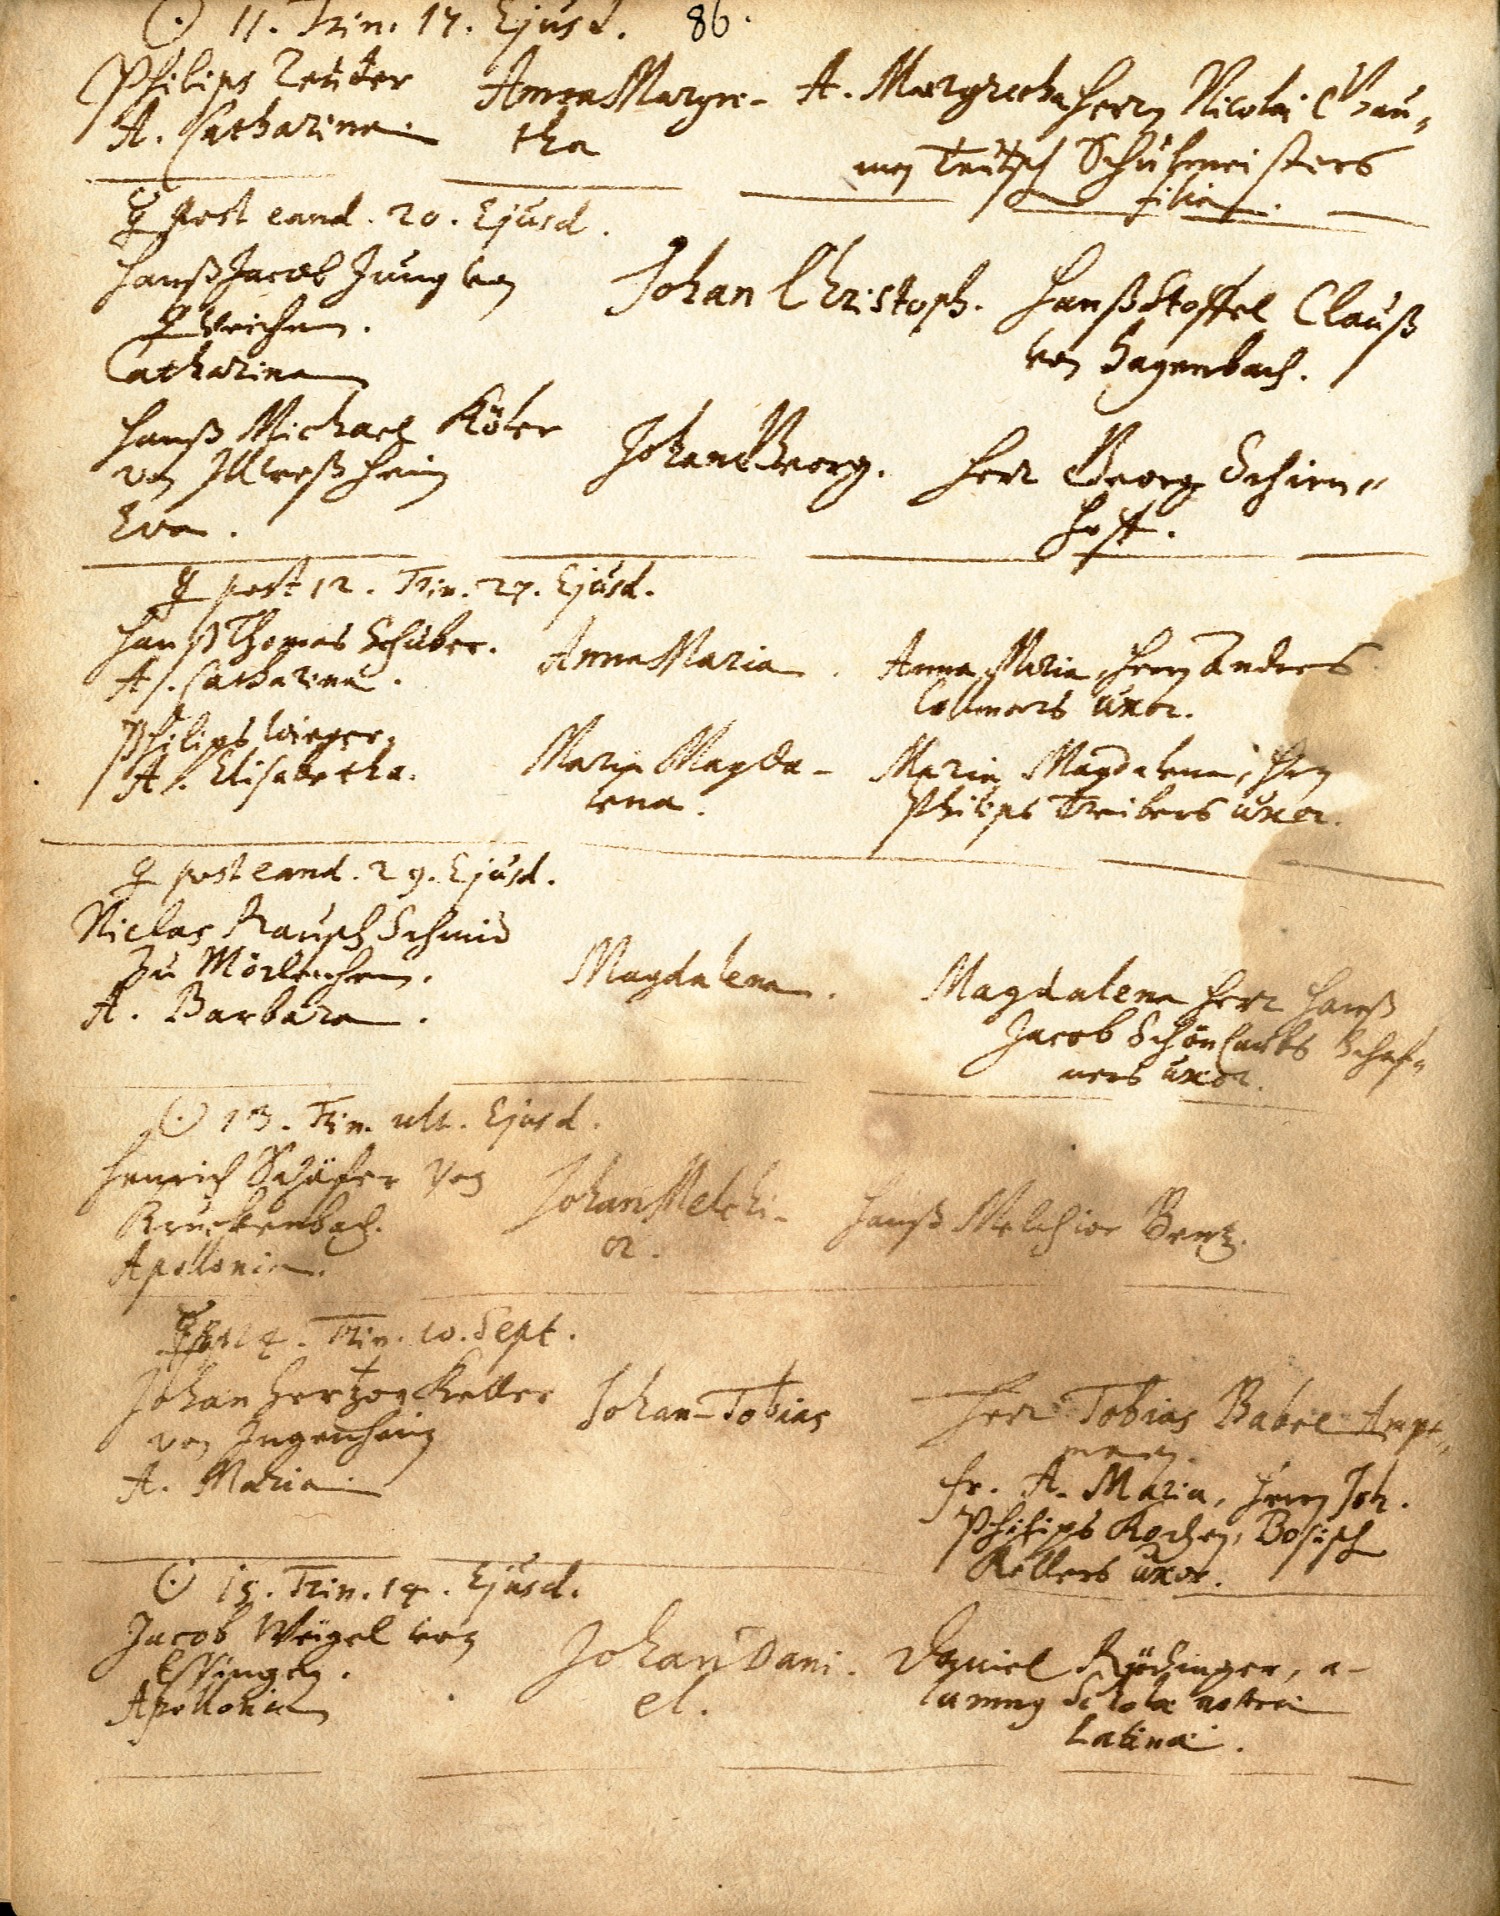 ☉ 11. Trin. 17. Ejusd. 86.
Philips Reuter
A. Catharina.
Anna Margre-
tha
A. Margretha Herrn Nicolai
Teutsch Schulmeisters
filia.
post eand. 20. Ejusd.
Hanß Jacob Jung von
Queichem.
Catharina
Johan Christoph.
Hanß Stoffel Clauß
von Hagenbach.
Hanß Michael Köler
von Illweßheim
Eva.
Johan Georg.
Herr Georg Schirm„
hoff.
☿ post 12. Trin. 27. Ejusd.
Hanß Thomas Schuber.
A. Catharina.
Anna Maria.
Anna Maria, Herrn Andres
Collmars uxor.
Philips Wieger,
A. Elisabetha.
Maria Magda-
lena.
Maria Magdalena, Herrn
Philips Treibers uxor.
♀ post eand. 29. Ejusd.
Niclas Rausch Schmid
zu Mörlenheim.
A. Barbara.
Magdalena.
Magdalena Herr Hanß
Jacob Schönlaubs Schaf„
ners uxor.
☉ 13. Trin. ult. Ejusd.
Henrich Schäfer von
Kruckenbach.
Apollonia.
Johan Melchi-
or.
Hanß Melchior Bentz.
14. Trin. 10. Sept.
Johan Hertzog Keller
von Ingenheim
A. Maria.
Johan-Tobias
Herr Tobias Babel Ampt„
man.
Fr. A. Maria, Herrn Joh.
Philips Kochen,
Kellers uxor.
☉ 15. Trin. 14. Ejusd.
Jacob Weigel von
Essingen.
Apollonia
Johan Dani-
el.
Daniel Rödinger, a-
lumnus Scholæ nostræ
Latinæ.